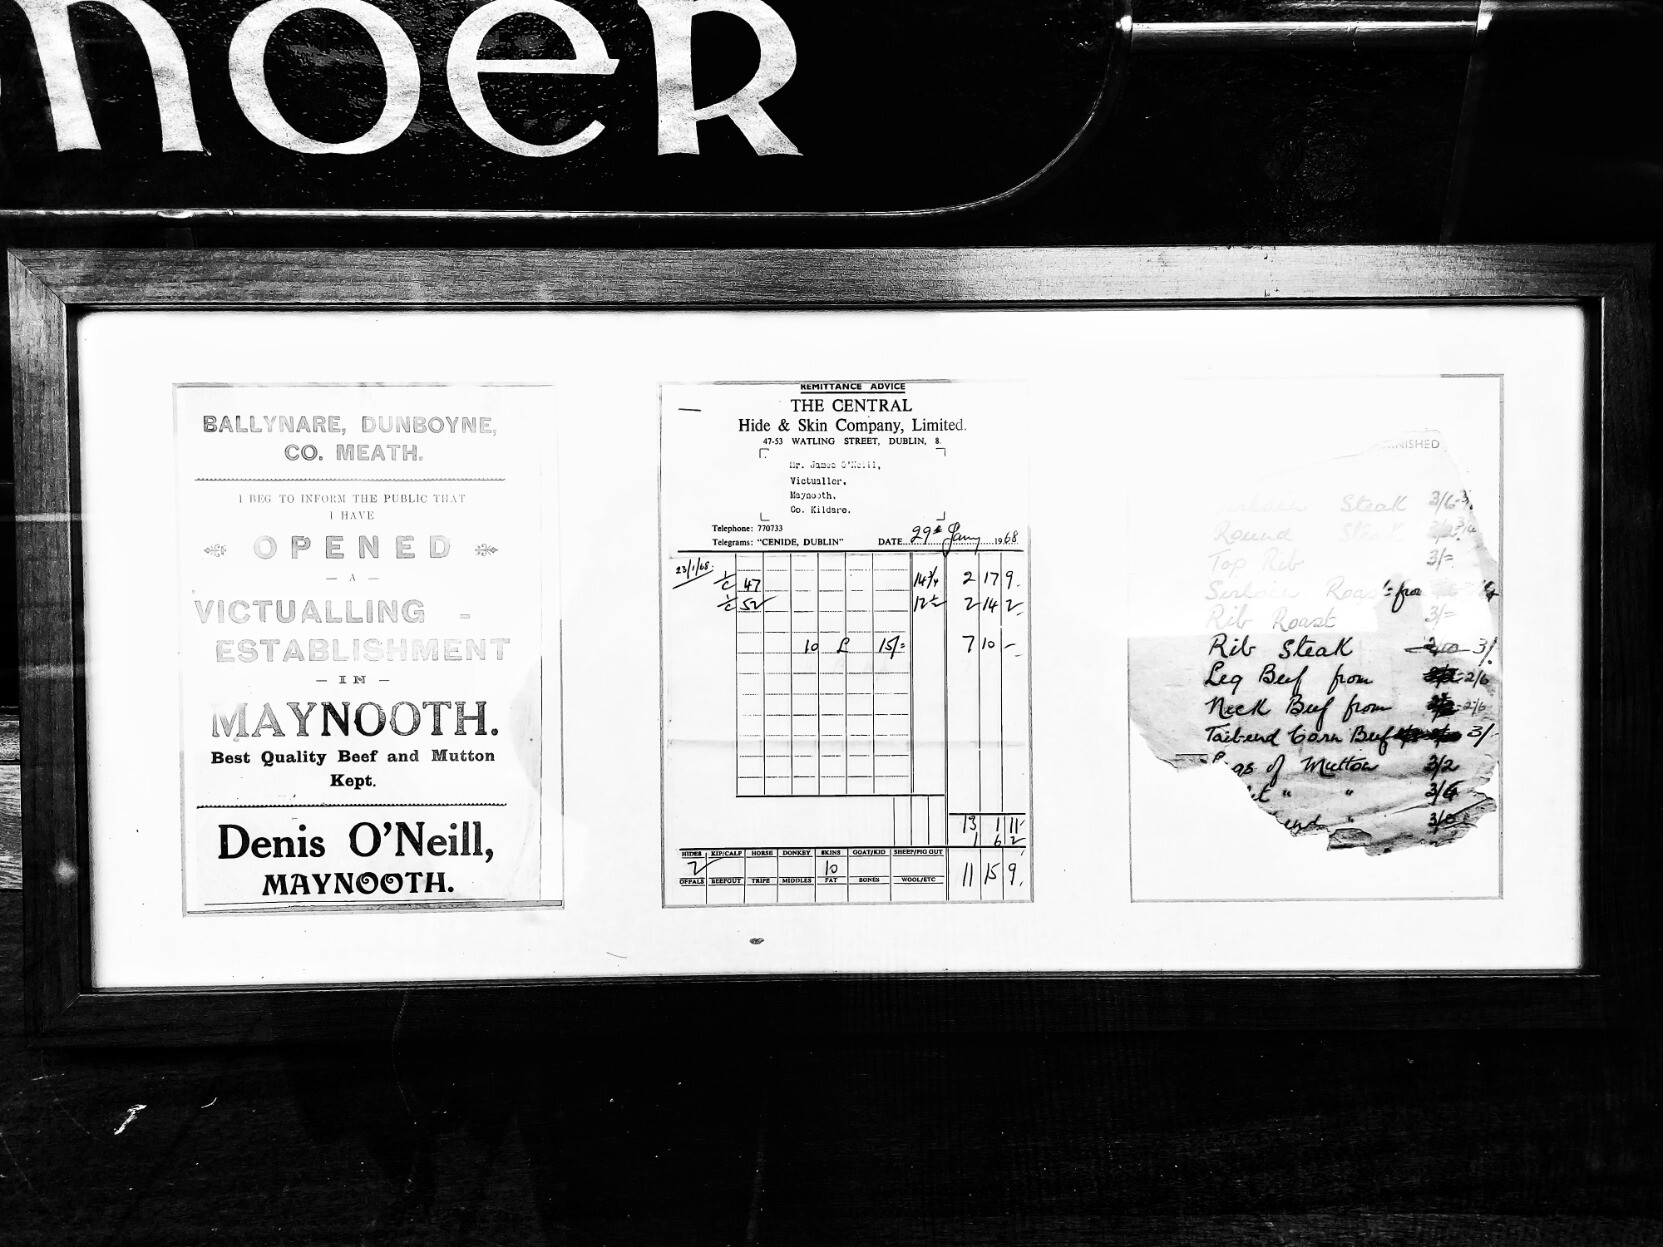 noeR
BALLYNARE, DUNBOYNE,
CO. MEATH.
I BEG TO INFORM THE PUBLIC THAT
I HAVE
OPENED
— A —
VICTUALLING -
ESTABLISHMENT
— IN —
MAYNOOTH.
Best Quality Beef and Mutton
Kept.
Denis O'Neill,
MAYNOOTH.
REMITTANCE ADVICE
THE CENTRAL
Hide & Skin Company, Limited.
47-53 WATLING STREET, DUBLIN, 8.
Mr. James O'Neill,
Victualler,
Maynooth,
Co. Kildare.
Telephone: 770733
Telegrams: "CENIDE, DUBLIN" DATE 29th Jany 1968
23/1/68
47 14¾ 2 17 9.
52 12½ 2 14 2
10 £ 15/= 7 10 -
13 1 11
1 6 2
HIDES KIP/CALF HORSE DONKEY SKINS GOAT/KID SHEEP/PIG GUT
2 10 11 15 9.
OFFALS BEEFGUT TRIPE MIDDLES FAT BONES WOOL/ETC
NISHED
Sirloin Steak 3/6
Round Steak
Top Rib 3/=
Sirloin Roast from
Rib Roast 3/=
Rib Steak 3/
Leg Beef from 2/6
Neck Beef from 2/6
Tail-end Corn Beef 3/-
Legs of Mutton 3/2
" " 3/6
end " 3/0